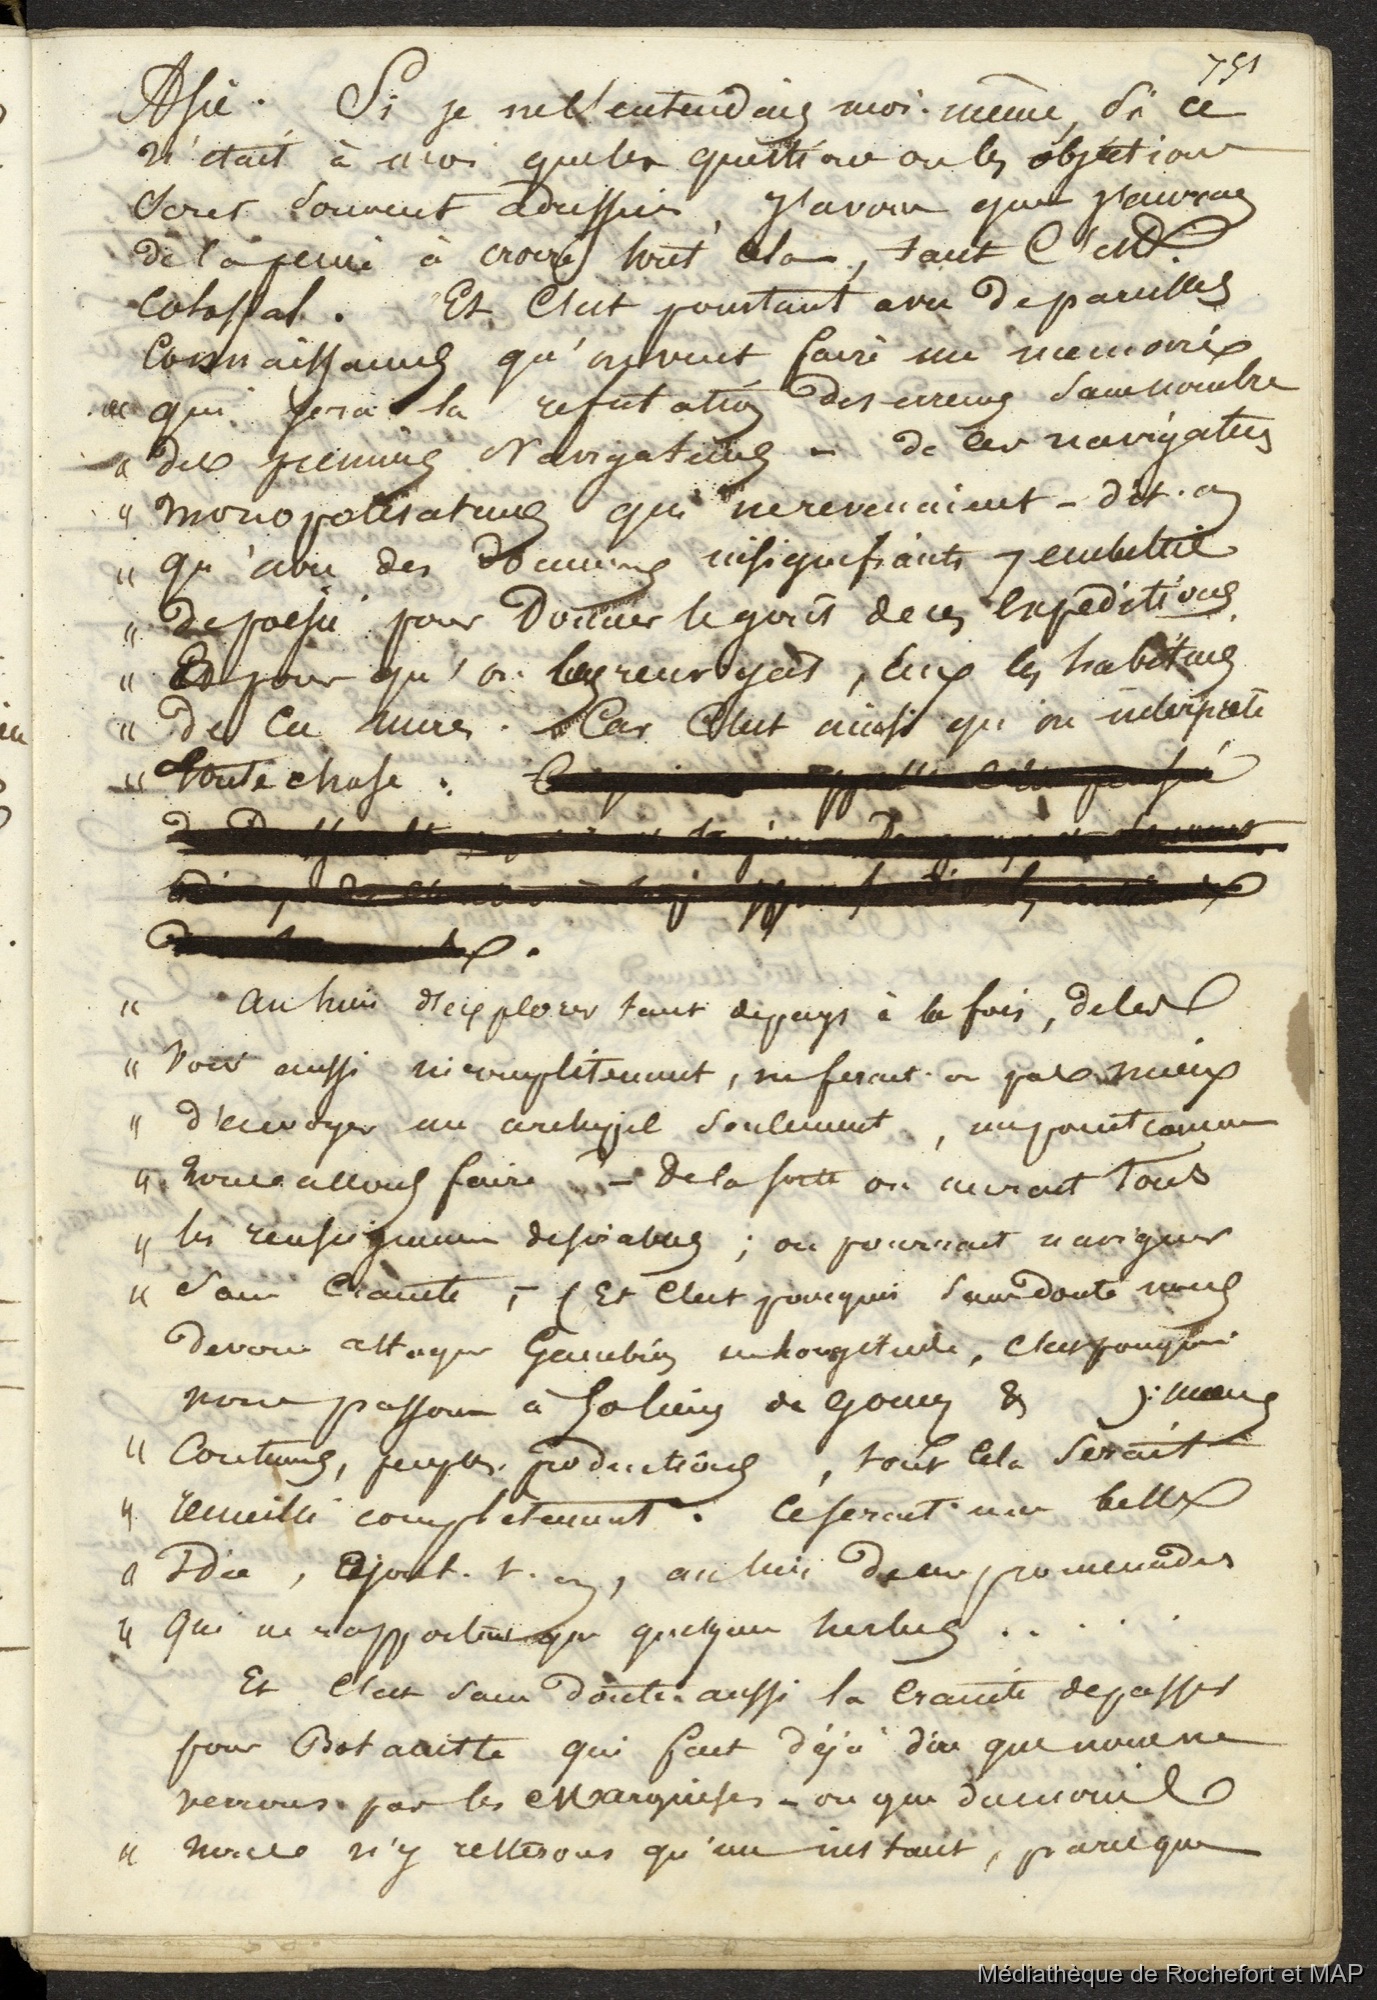 751
Asie. Si je ne l'entendais moi-même, Si ce
n'était à moi que les questions ou les objections
Sont Souvent adressées, j'avoue que j'aurais
de la peine à croire tout cela, tant C'est
Colossal. Et C'est pourtant avec de pareilles
Connaissances qu'on veut faire un memoire
" qui sera la refutation des erreurs Sans nombre
" des premiers Navigateurs - de ces navigateurs
" monopolisateurs qui ne revenaient - dit-on
" qu'avec des insignifiants, embellis
" de poésie pour Donner le goût de ces Expéditions
" Et pour qu'on les renvoyât, Eux les habitués
" De Ces mers. Car C'est ainsi qu'on interprète
" toute chose.
" Au lieu d'explorer tant de pays à la fois, de les
" Voir aussi incomplètement, ne ferait-on pas mieux
" d'envoyer un archipel Seulement, un point comme
" nous allons faire - De la sorte on aurait Tous
" les renseignemens désirables ; on pourrait naviguer
" Sans Crainte, - (Et C'est pourquoi Sans Doute nous
devons attaquer Gambier en longitude, C'est pourquoi
nous passons à ) : mœurs
" Coutumes, peuples, productions, tout Cela Serait
" recueilli complètement. Ce serait une belle
" Idée, ajout.t.on, au lieu de ces promenades
" Qui ne rapportent que quelques herbes . . . . .
Et C'est Sans Doute aussi la Crainte de passer
pour Botaniste qui fait déjà dire que nous ne
verrons pas les Marquises - ou que du moins
" nous n'y resterons qu'un instant, parceque
Médiathèque de Rochefort et MAP